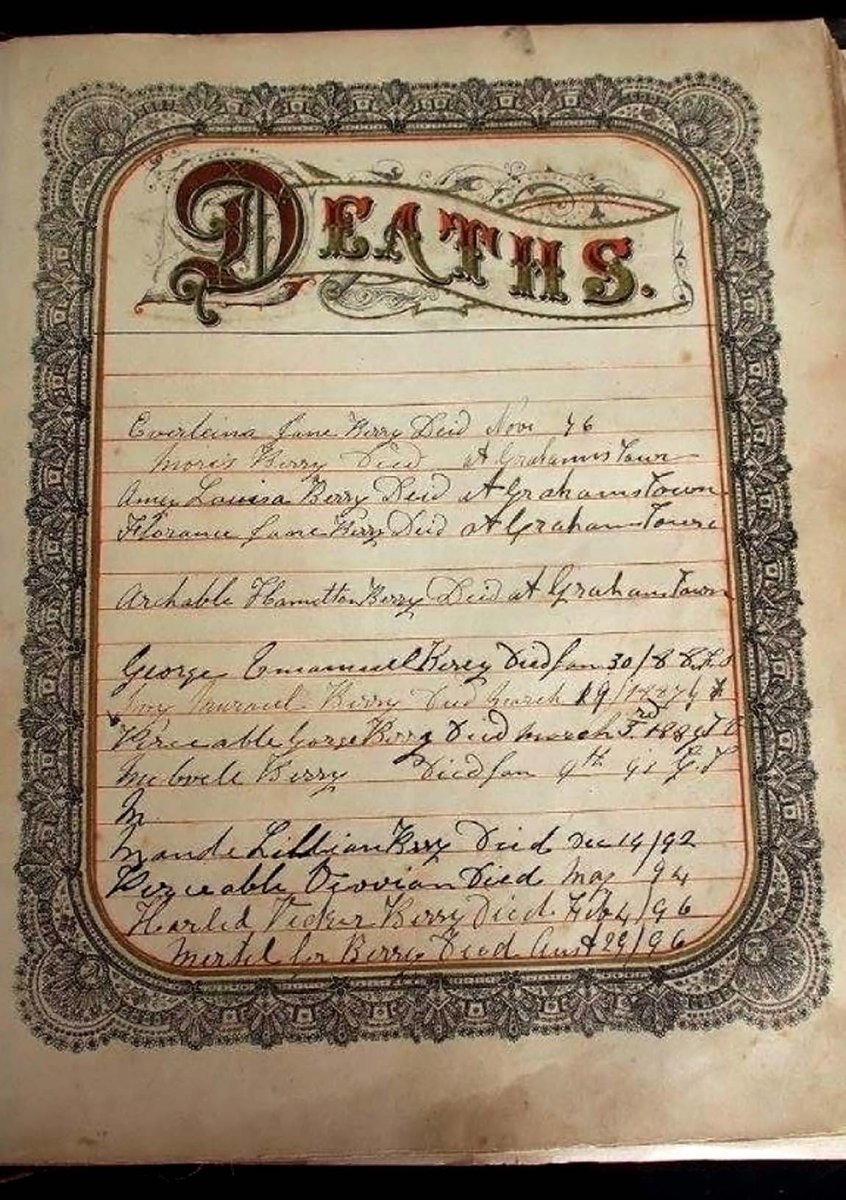 DEATHS.
Everleina Jane Berry Died Nov 76
Moris Berry Died at Grahamstown
Amy Louisa Berry Died at Grahamstown
Florance Jane Berry Died at Grahamstown
Archable Hamilton Berry Died at Grahamstown
George Emanuel Berry Died Jan 30/8
Berry Died March 19/1887
George Berry Died March 3rd 188
Berry Died Jan 9th 91 G.T
M
Maude Lillian Berry Died Dec 14/92
Died May 94
Harled Victor Berry Died Feb 4/96
Mertel Berry Died Aust 29/96